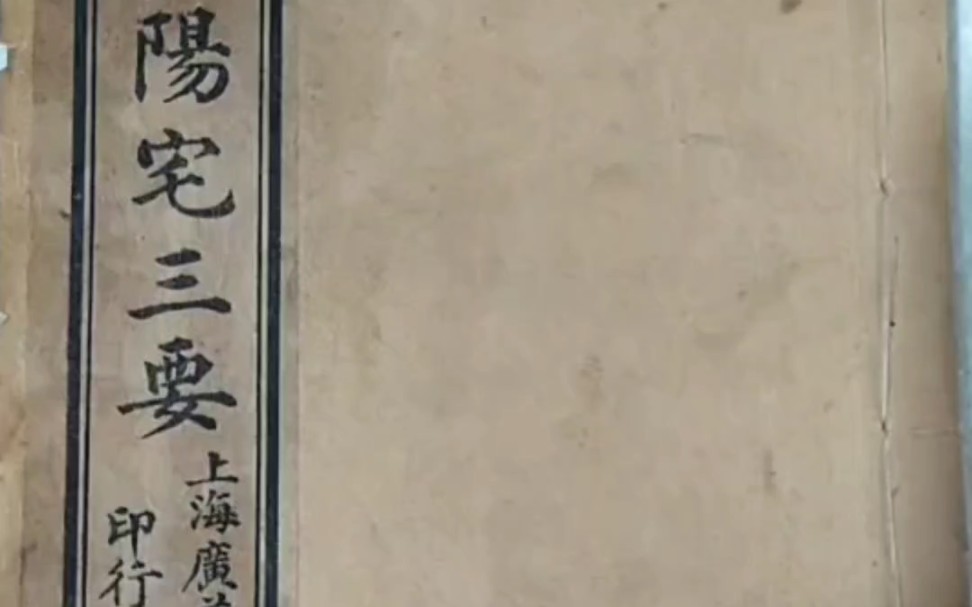 陽宅三要
上海廣
印行